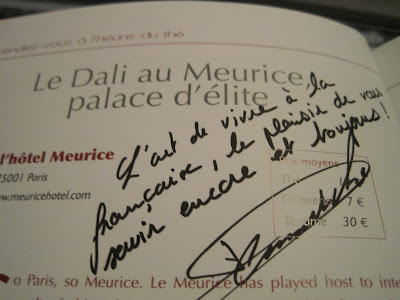 rendez-vous à l'heure du thé
Le Dali au Meurice,
palace d'élite
L'art de vivre à la
française, le plaisir de vous
servir encore et toujours!
l'hôtel Meurice
75001 Paris
www.meuricehotel.com
Prix moyens
Thé
Pâtisserie 7 €
30 €
o Paris, so Meurice. Le Meurice has played host to inte